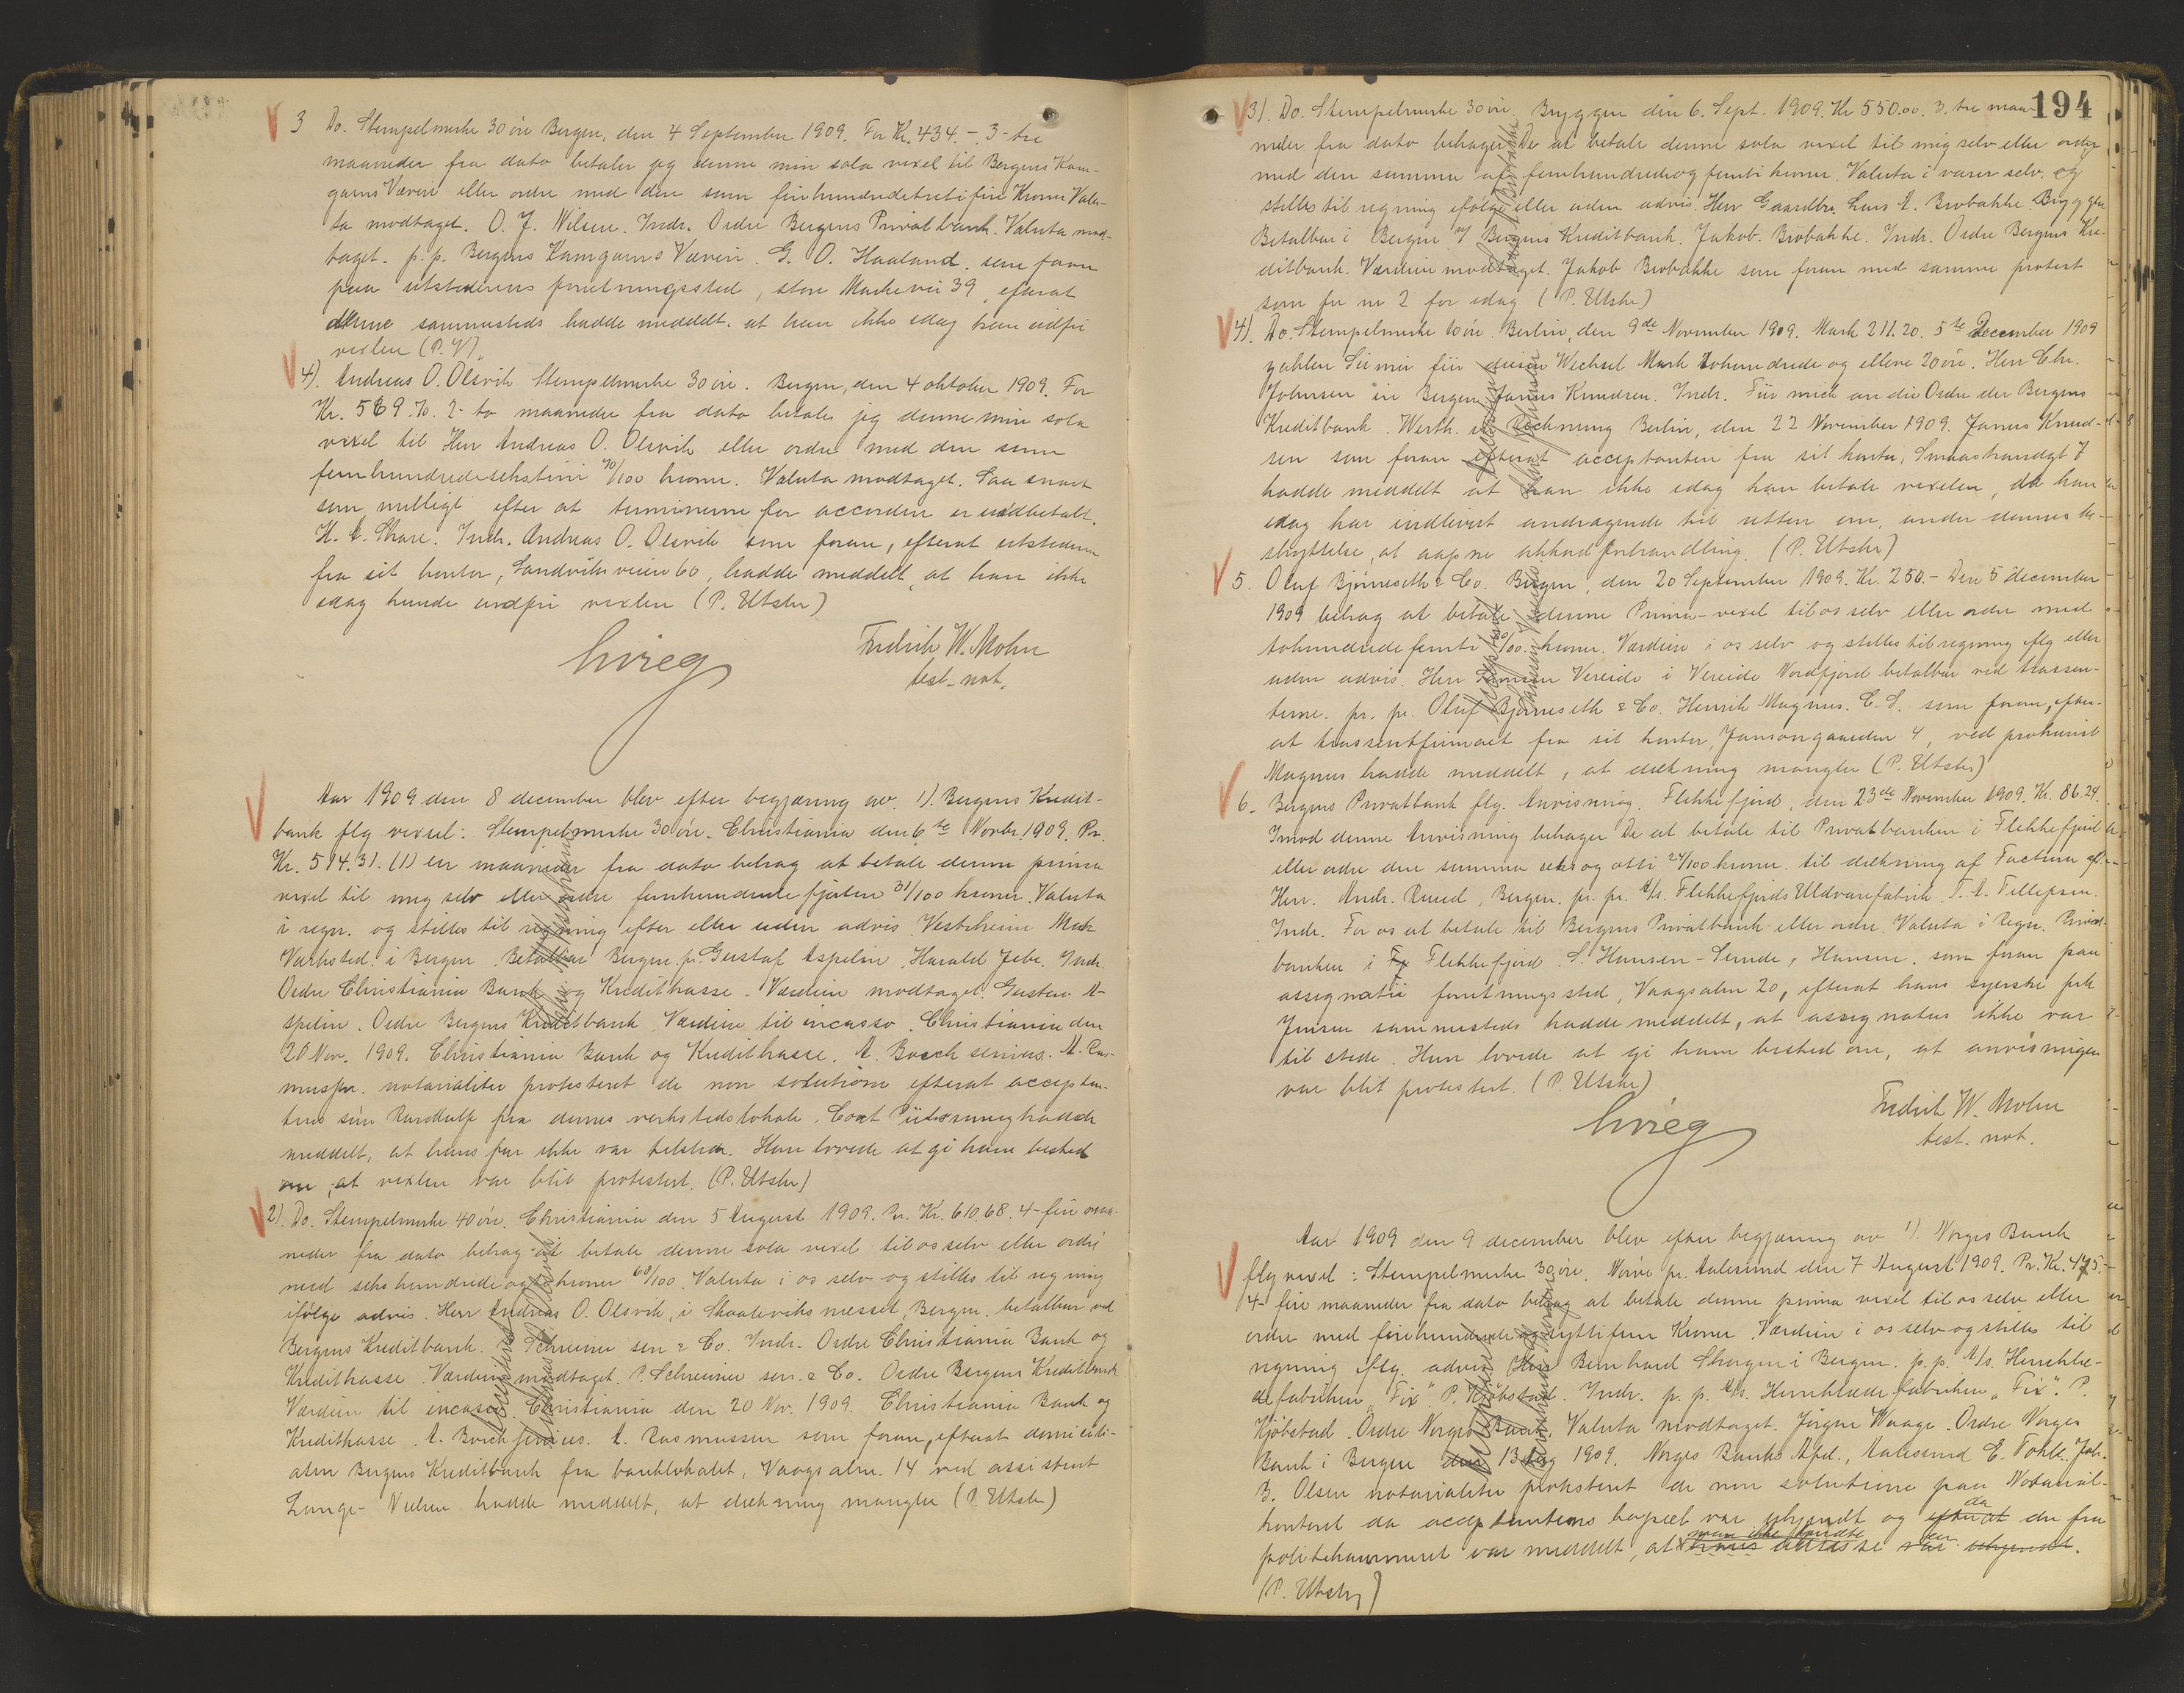 3 Do. Stempelmerke 30 öre Bergen, den 4 September 1909. For Kr. 434.- 3- tre
maaneder fra dato betaler jeg denne min sola vexel til Bergens Kam-
garns Væveri eller ordre med den sum firehundredetretifire Kroner Valu-
ta modtaget. O. J. Nilsen. Indr. Ordre Bergens Privatbank. Valuta mod-
taget. p.p. Bergens Kamgarns Væveri. G. O. Haaland. som foran
paa utstederens forretningssted, store Markevei 39, efterat
denne sammesteds hadde meddelt, at han ikke idag kan indfri
vexlen (P. U).
4). Andreas O. Olsvik Stempelmerke 30 öre. Bergen, den 4 oktober 1909. For
Kr. 569.70. 2- to maaneder fra dato betaler jeg denne min sola
vexel til Herr Andreas O. Olsvik eller ordre med den sum
femhundredesekstini 70/100 kroner. Valuta modtaget. Saa snart
som muligt efter at terminerne for accorden er udbetalt.
H. C. Skare. Indr. Andreas O. Olsvik som foran, efterat utstederen
fra sit kontor, Sandviksveien 60, hadde meddelt, at han ikke
idag kunde indfri vexlen (P. Utskr)
Fredrik W. Mohn
test. not.
Aar 1909 den 8 december blev efter begjæring av 1). Bergens Kredit-
bank flg vexsel: Stempelmerke 30 öre. Christiania den 6te Novbr. 1909. Pr.
Kr. 514.31. (1) en maaneder fra dato behag at betale denne prima
vexel til mig selv eller ordre femhundrede fjorten 31/100 kroner. Valuta
i regn. og stilles til regning efter eller uden advis Vestheim Mek
Værksted i Bergen. Betalbar Bergen. pr. Gustaf Aspelin. Harald Jebe. Indr.
Ordre Christiania Bank og Kreditkasse. Værdien modtaget. Gustav A-
spelin. Ordre Bergens Kreditbank Værdien til incasso. Christiania den
20 Nov. 1909. Christiania Bank og Kreditkasse. A. Borch senius. A. Ras-
mussen. notarialiter protestert de non solutione efterat acceptan-
tens sön Randulf fra dennes verkstedslokale, hadde
meddelt, at hans far ikke var tilstede. Han lovede at gi ham besked
om, at vexlen var blit protestert. (P. Utskr)
2). Do. Stempelmerke 40 öre. Christiania den 5 August 1909. Pr. Kr. 610.68. 4- fire maa-
neder fra dato behag at betale denne sola vexel til os selv eller ordre
med sekshundrede og ti kroner 68/100. Valuta i os selv og stilles til regning
ifölge advis. Herr Andreas O. Olsvik, i Skuteviksnesset, Bergen. betalbar ved
Bergens Kreditbank. P. Schreiner sen & Co. Indr. Ordre Christiania Bank og
Kreditkasse Værdien modtaget. P. Schreiner sen. & Co. Ordre Bergens Kreditbank
Værdien til incasso. Christiania den 20 Nov. 1909. Christiania Bank og
Kreditkasse. A. Borch senius. A. Rasmussen som foran, efterat domicili-
aten Bergens Kreditbank fra banklokalet, Vaagsalm. 14 ved assistent
Lange-Nielsen hadde meddelt, at dækning mangler (P. Utskr)
194
3). Do. Stempelmerke 30 öre. Bryggen den 6. Sept. 1909. Kr 550.00. 3. tre maa-
neder fra dato behager De at betale denne sola vexel til mig selv eller ordre
med den summa af femhundredeogfemti kroner. Valuta i varer selv og
stilles til regning ifölge eller uden advis. Herr Gaardbr. Lars A. Brobakke Bryggen
Betalbar i Bergen v/ Bergens Kreditbank. Jakob. Brobakke. Indr. Ordre Bergens Kre-
ditbank. Værdien modtaget. Jakob Brobakke som foran med samme protest
som for nr 2 for idag (P. Utskr)
4). Do. Stempelmerke 10 öre. Berlin, den 9de November 1909. Mark 211.20. 5te December 1909
zahlen Sie mir für diesen Wechsel Mark tohundrede og elleve 20 öre. Herr Chr.
Johnsen in Bergen Janus Knudsen. Indr. Für mich an die Ordre der Bergens
Kreditbank. Werth in Rechnung Berlin, den 22 November 1909. Janus Knud-
sen som foran efterat acceptanten fra sit kontor, Smaastrandgt 7
hadde meddelt at han ikke idag kan betale vexelen, da han
idag har indlevert andragende til retten om, under dennes be-
skyttelse, at aapne akkordforhandling. (P. Utskr)
5. Oluf Bjørneseth & Co. Bergen, den 20 September 1909. Kr. 250.- Den 5 december
1909 behag at betale denne Prima-vexel til os selv eller ordre med
tohundredefemti 00/100 kroner. Værdien i os selv og stilles til regning iflg eller
uden advis. Herr Samson Vereide i Vereide Nordfjord betalbar ved trassen-
terne. pr. pr. Oluf Bjørneseth & Co. Henrik Magnus. C. S. som foran, efter-
at trassentfirmaet fra sit kontor, Jansongaarden 4, ved prokurist
Magnus hadde meddelt, at dækning mangler (P. Utskr)
6. Bergens Privatbank flg. Anvisning. Flekkefjord, den 23de November 1909. Kr. 86.24.
Imod denne Anvisning behager De at betale til Privatbanken i Flekkefjord
eller ordre den summa seksogotti 24/100 kroner. til dækning af Factura af
Herr. Andr. Ruud, Bergen. pr. pr. A/s. Flekkefjords Uldvarefabrik. T. A. Tellefsen.
Indr. For os at betale til Bergens Privatbank eller ordre. Valuta i Regn. Privat-
banken i Flekkefjord. S. Hansen-Sunde, Hansen. som foran paa
assignatii forretningssted, Vaagsalm 20, efterat hans syerske frk
Jensen sammesteds hadde meddelt, at assignatus ikke var
til stede. Hun lovede at gi ham besked om, at anvisningen
var blit protestert. (P. Utskr)
Fredrik W. Mohn
test. not.
Aar 1909 den 9 december blev efter begjæring av 1). Norges Bank
flg vexel: Stempelmerke 30 öre. Nörve pr. Aalesund den 7 August 1909. Pr. Kr. 475.-
4- fire maaneder fra dato behag at betale denne prima vexel til os selv eller
ordre med firehundrede og syttifem Kroner Værdien i os selv og stilles til
regning iflg. advis Herr Bernhard Skorgen i Bergen. p. p. A/s. Herreklæ-
defabriken "Fix". P. Kjöbstad. Indr. p. p. A/s. Herreklædefabriken "Fix". P.
Kjöbstad. Ordre Norges Bank. Valuta modtaget. Jörgen Waage. Ordre Norges
Bank i Bergen den 13 Aug 1909. Norges Banks Afd., Aalesund E. Tohle. Joh.
B. Olsen notarialiter protestert de non solutione paa Notarial-
kontoret da acceptantens bopæl var ukjendt og efterat da der fra
politikammeret var meddelt, at man ikke kjendte hans adresse var ukjendt.
(P. Utskr)